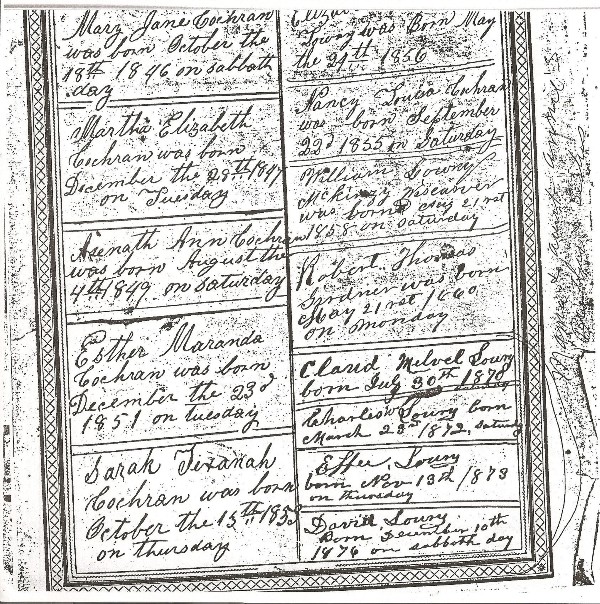 Mary Jane Cochran
was born October the
18th 1846 on Sabbath
day
Martha Elizabeth
Cochran was born
December the 28th 1847
on Tuesday
Asenath Ann Cochran
was born August the
4th 1849 on Saturday
Esther Maranda
Cochran was born
December the 23d
1851 on tuesday
Sarah
Cochran was born
October the 13th 1853
on thursday
Lowry was Born May
the 24th 1856
Nancy Louisa Cochran
was born September
22d 1855 on Saturday
William Lowry
was born Aug 21st
1858 on Saturday
Robert Thomas
was born
May 21st 1860
on monday
Claud Melvel Lowry
born July 30th 1870
Charles Lowry born
March 23rd 1872, Saturday
Effee Lowry
born Nov 13th 1873
on thursday
David Lowry
Born December 10th
1876 on sabbath day